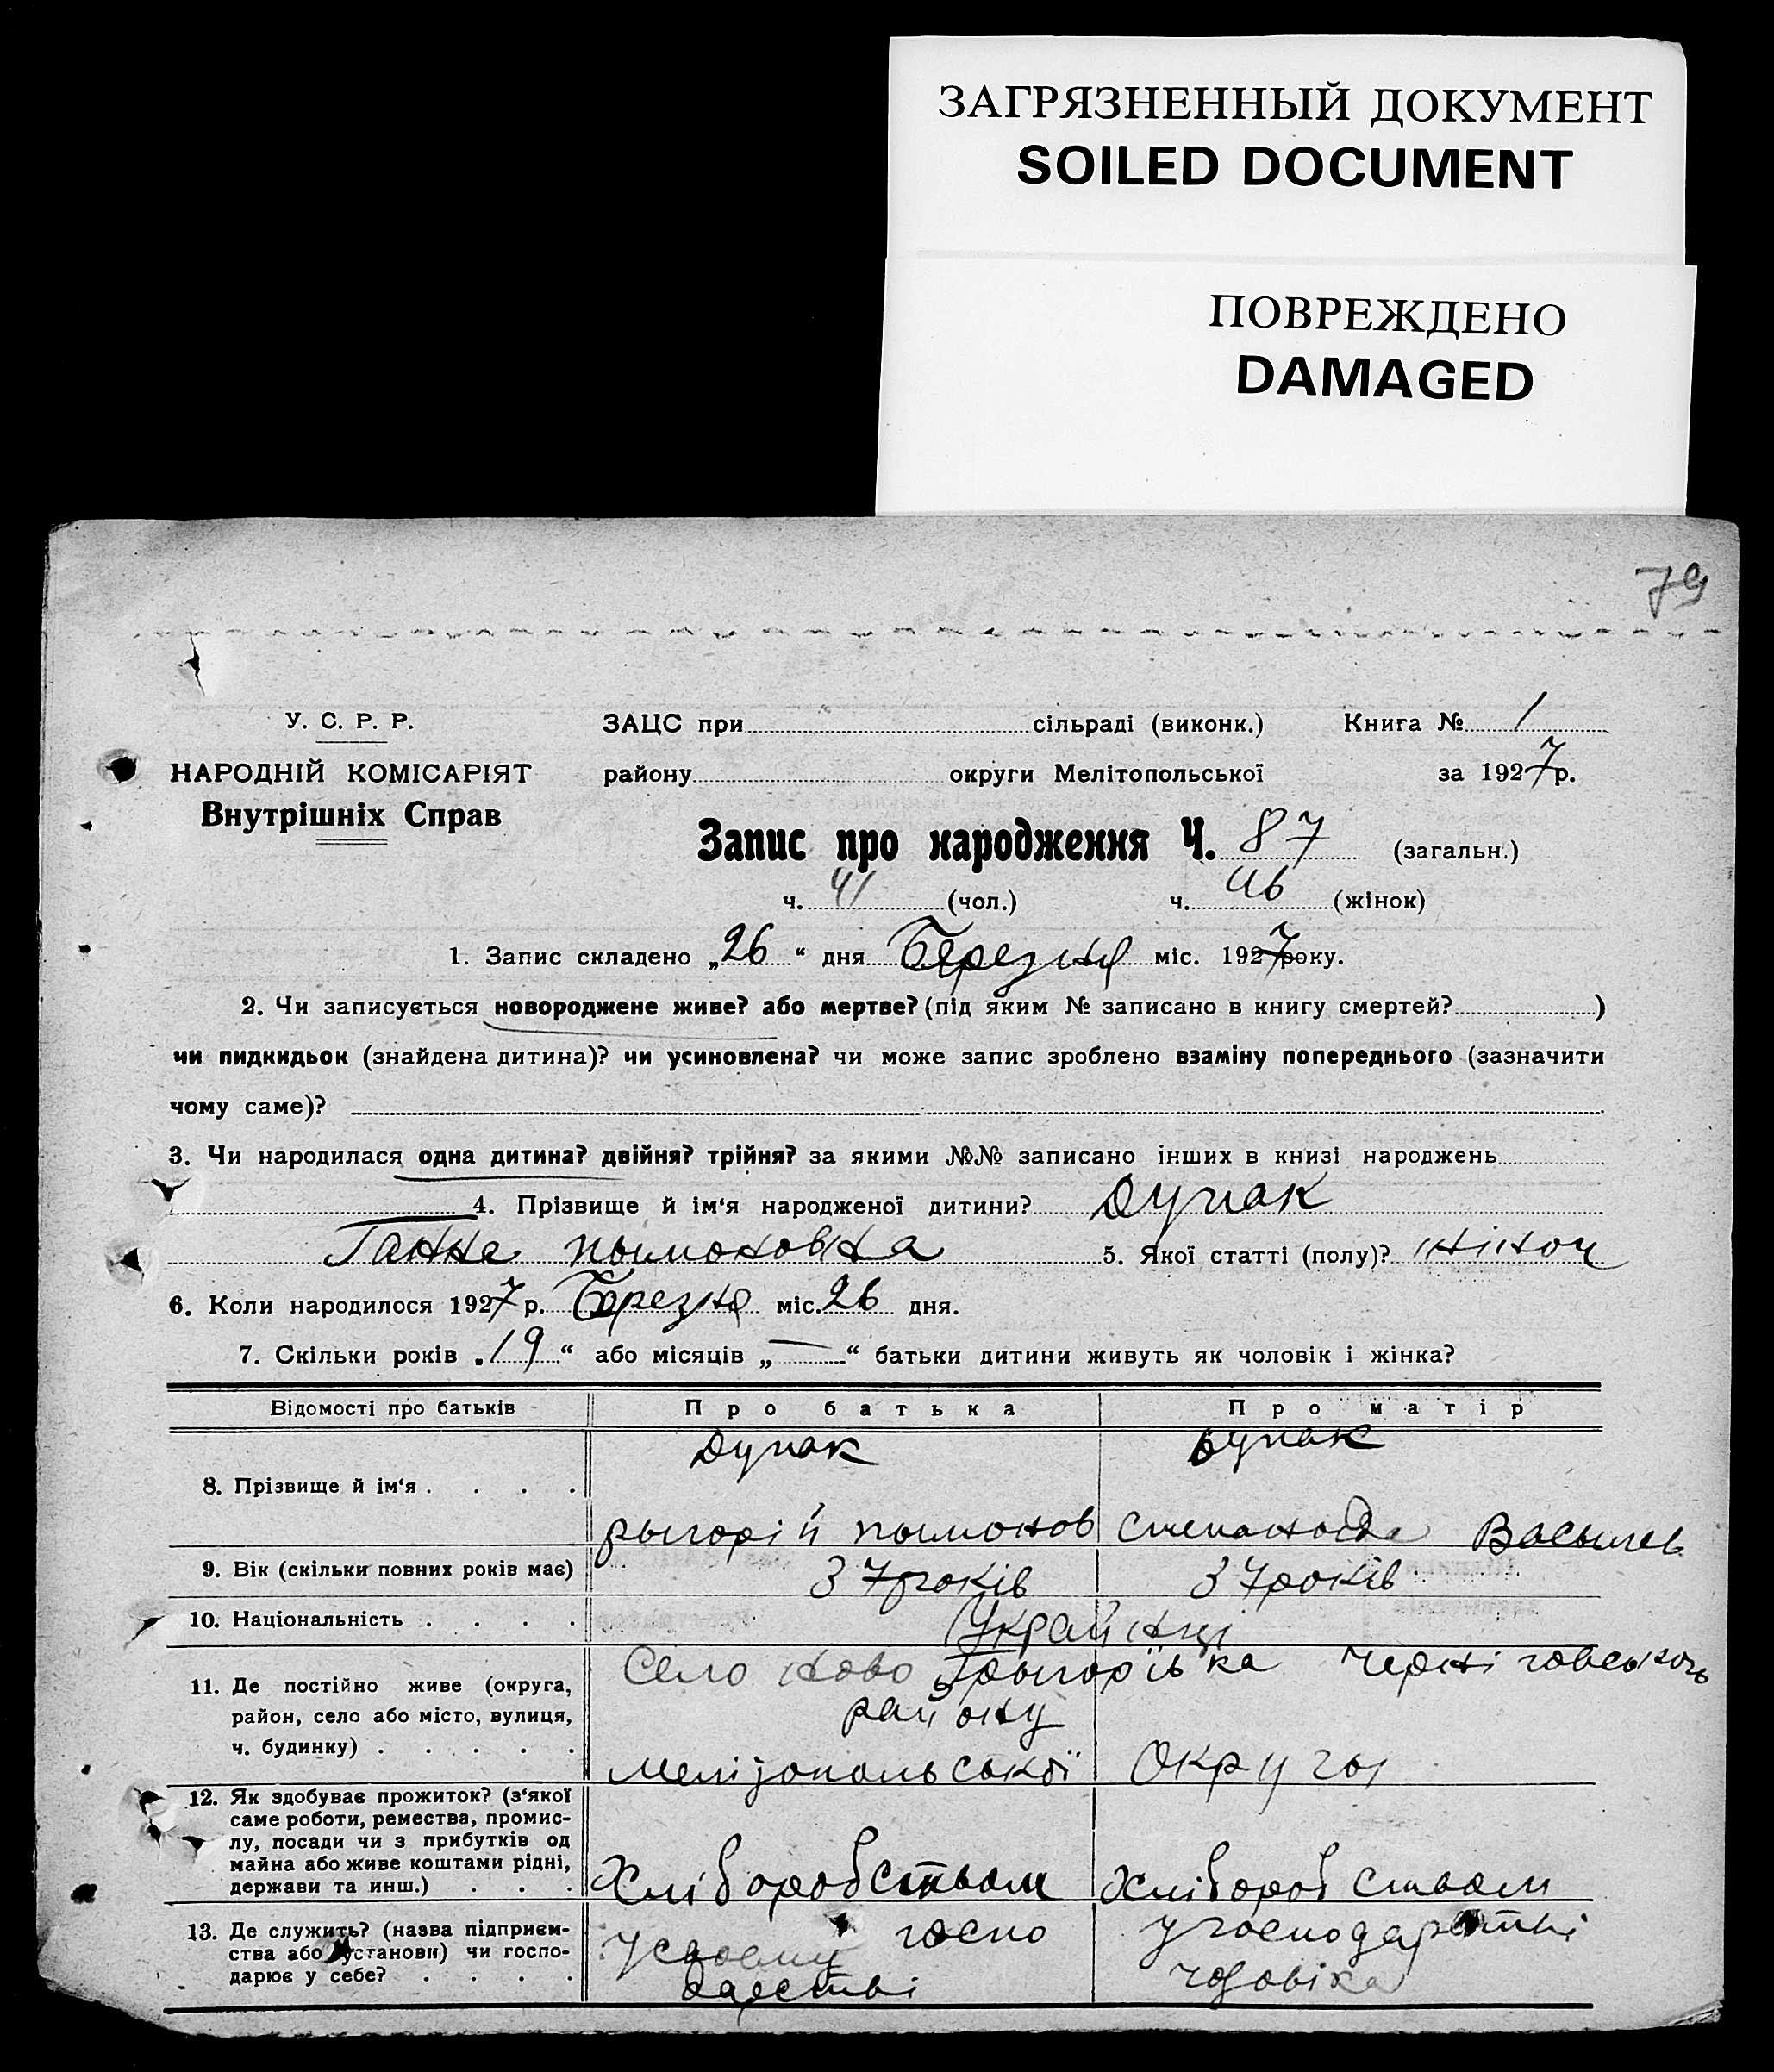 ЗАГРЯЗНЕННЫЙ ДОКУМЕНТ
SOILED DOCUMENT
ПОВРЕЖДЕНО
DAMAGED
79
У. С. Р. Р. ЗАЦС при сільраді (виконк.) Книга № 1
НАРОДНІЙ КОМІСАРІЯТ району округи Мелітопольської за 1927 р.
Внутрішніх Справ
Запис про народження Ч. 87 (загальн.)
ч. 41 (чол.) ч. 46 (жінок)
1. Запис складено „26“ дня Березня міс. 1927 року.
2. Чи записується новороджене живе? або мертве? (під яким № записано в книгу смертей? )
чи пидкидьок (знайдена дитина)? чи усиновлена? чи може запис зроблено взаміну попереднього (зазначити
чому саме)?
3. Чи народилася одна дитина? двійня? трійня? за якими №№ записано інших в книзі народжень
4. Прізвище й ім‘я народженої дитини? Дупак
Ганна 5. Якої статті (полу)? жіноч
6. Коли народилося 1927 р. Березня міс. 26 дня.
7. Скільки років „19“ або місяців „—“ батьки дитини живуть як чоловік і жінка?
Відомості про батьків Про батька Про матір
Дупак Дупак
8. Прізвище й ім‘я . . . .
Васылев
9. Вік (скільки повних років має) 37 років 37 років
10. Національність . . . . Украйнці
Село Ново Грыгорівка Черніговського
11. Де постійно живе (округа,
район, село або місто, вулиця, району
ч. будинку) . . . . . Мелітопольської Округы
12. Як здобуває прожиток? (з‘якої
саме роботи, ремества, промис-
лу, посади чи з прибутків од
майна або живе коштами рідні,
держави та инш.) . . . Хліборобством Хліборобством
13. Де служить? (назва підприєм- У своему госпо У господарстві
ства або установи) чи госпо-
дарює у себе? . . . . дарстві чоловіка